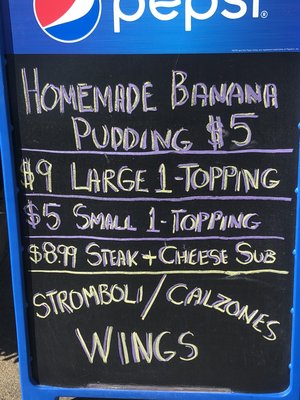 pepsi
HOMEMADE BANANA
PUDDING $5
$9 LARGE 1-TOPPING
$5 SMALL 1-TOPPING
$8.99 STEAK + CHEESE SUB
STROMBOLI/CALZONES
WINGS